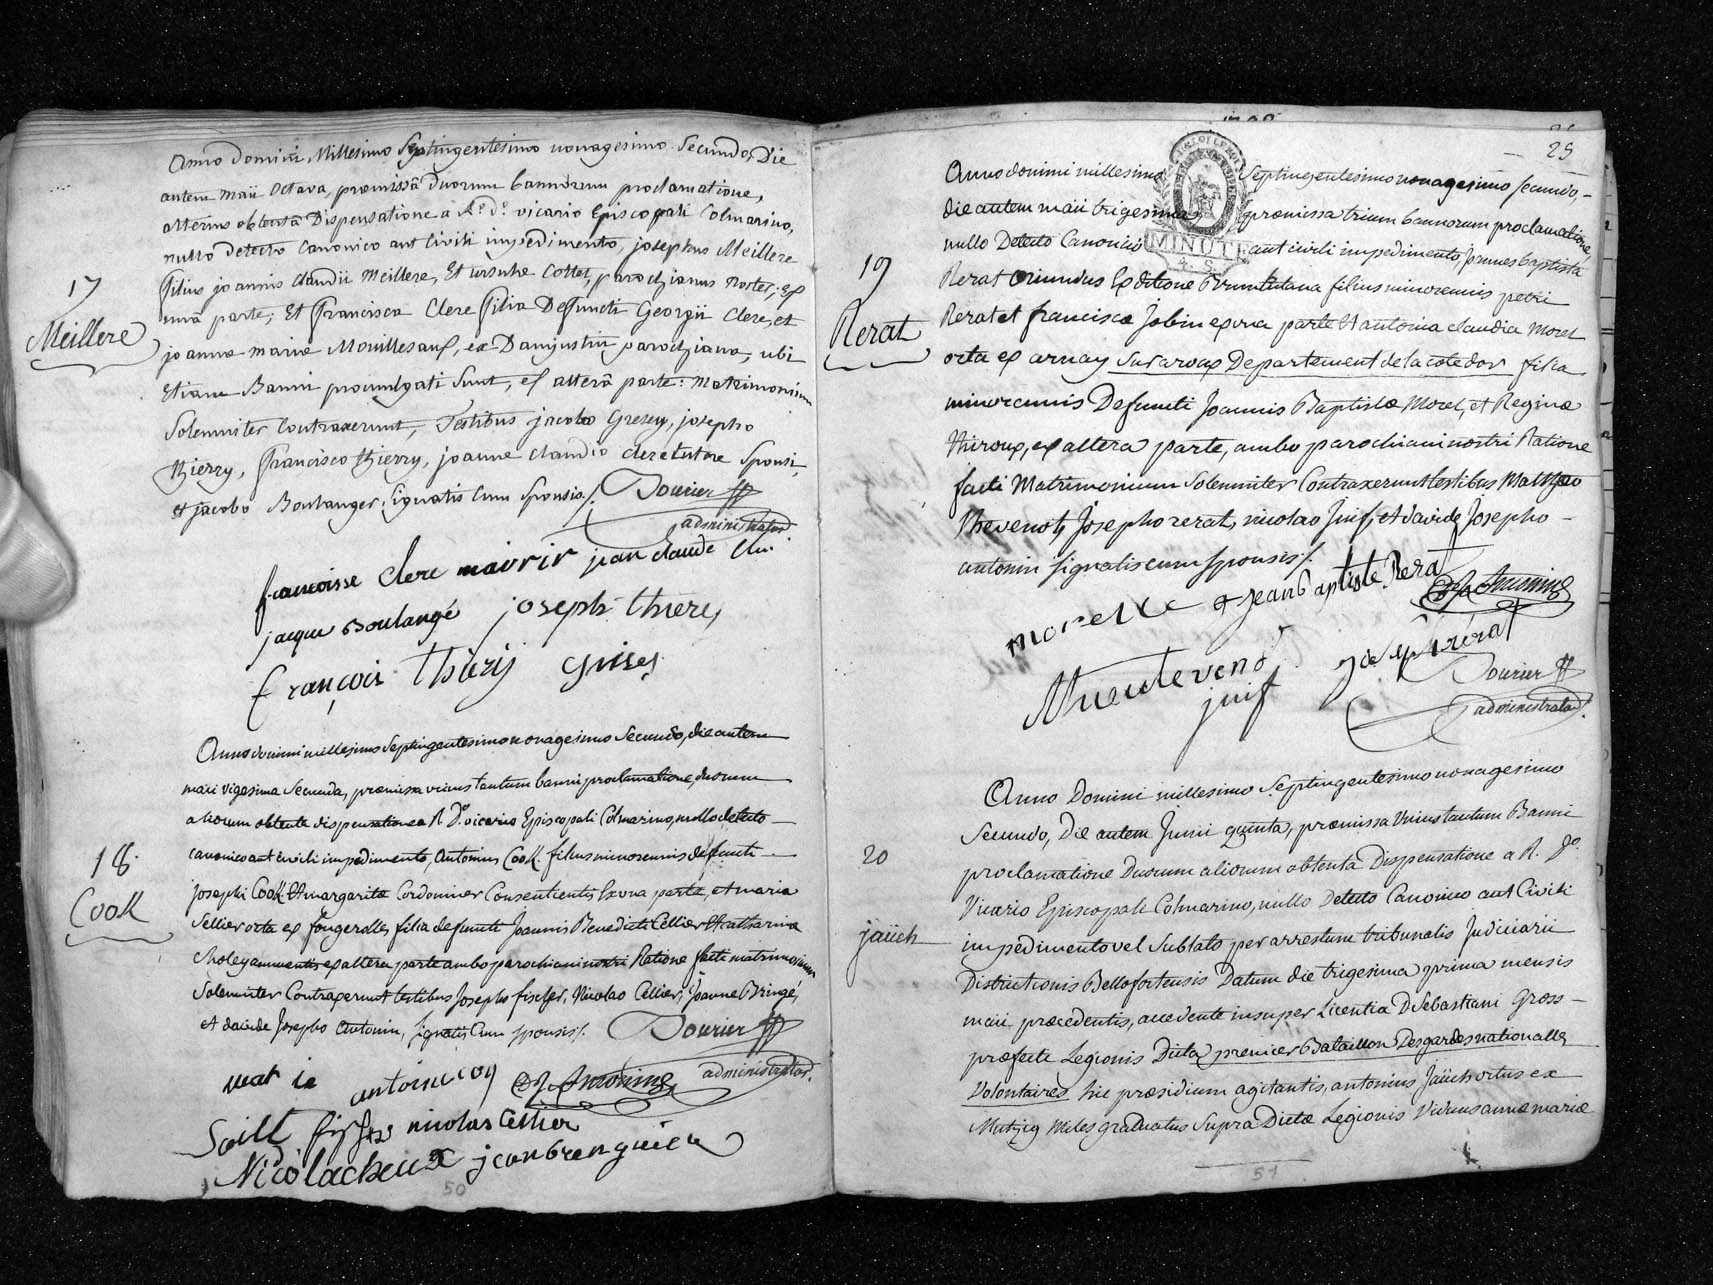 Anno Domini Millesimo Septingentesimo nonagesimo Secundo, Die
autem Maii Octava, præmissâ duorum bannorum proclamatione,
alterius obtentâ Dispensatione a R.do D.o vicario Episcopali Colmarino,
nullo detecto canonico aut Civili impedimento, josephus Meillere
filius joannis claudii Meillere, Et ursulæ Cottet, parochianus noster, ex
unâ parte; Et Francisca Clere filia Defuncti Georgii Clere, et
joannæ mariæ Mouillesaux, ex parochiana, ubi
Etiam Banni promulgati sunt, ex alterâ parte: Matrimonium
Solemniter Contraxerunt, Testibus jacobo Gresey, josepho
thierry, Francisco thierry, joanne claudio clere tutore Sponsi,
et jacobo Boulanger, Signatis Cum Sponsis /.
17
Meillere
Dourier
administrator
francoisse clere jean claude
jacque Boulangé joseph thiery
françois thieri
Anno domini millesimo Septingentesimo nonagesimo Secundo, die autem
maii vigesima Secunda, præmissa unius tantum banni proclamatione, duorum
aliorum obtenta dispensatione a R. D.o vicario Episcopali Colmarino, nullo detecto
canonico aut civili impedimento, Antonius Cook filius minorennis defuncti
Josephi Cook Et margaritæ Cordonnier Consentientis Ex una parte, et maria
Sellier orta ex fougerolle, filia defuncti Joannis Benedicti Cellier Et catharinæ
choley ex altera parte ambo parochiani nostri Ratione facti matrimonium
Solemniter Contraxerunt testibus Josepho fischer, Nicolao Cellier, Joanne Bringé,
et davide Josepho Antonin, Signatis Cum Sponsis /. Dourier
18.
Cook
administrator.
antoine coq
nicolas Cellier
Nicola
25
Anno domini millesimo Septingentesimo nonagesimo secundo,
die autem maii trigesima, præmissa trium bannorum proclamatione,
nullo Detecto Canonico aut civili impedimento, Joannes baptista
MINUTE
Rerat Oriundus Ex ditione Bruntrutana filius minorennis petri
Rerat et franciscæ Jobin ex una parte Et antonia claudia Morel
orta ex arnay sur aroux Departement de la cote dor filia
minorennis Defuncti Joannis Baptistæ Morel, et Reginæ
thiroux, ex altera parte, ambo parochiani nostri Ratione
facti Matrimonium Solemniter Contraxerunt testibus Matthæo
thevenot, Josepho rerat, nicolao Juif, et davide Josepho
antonin signatis cum sponsis /.
19
Rerat
morelle jean baptiste Rerat
juif
Dourier
administrator.
Anno Domini millesimo Septingentesimo nonagesimo
Secundo, Die autem Junii quinta, præmissa Unius tantum Banni
proclamatione Duorum aliorum obtenta Dispensatione a R. D.o
Vicario Episcopali Colmarino, nullo Detecto Canonico aut Civili
impedimento vel Sublato per arrestum tribunalis Judiciarii
Districtionis Bellofortensis Datum die trigesima prima mensis
maii præcedentis, accedente insuper Licentia D. Sebastiani Gross
præfecti Legionis Dictæ premier Bataillon Des gardes nationalles
Volontaires hic præsidium agitantis, antonius Jaüch ortus ex
Mutzig miles graduatus Supra Dictæ Legionis viduus annæ mariæ
20
jaüch
50
51